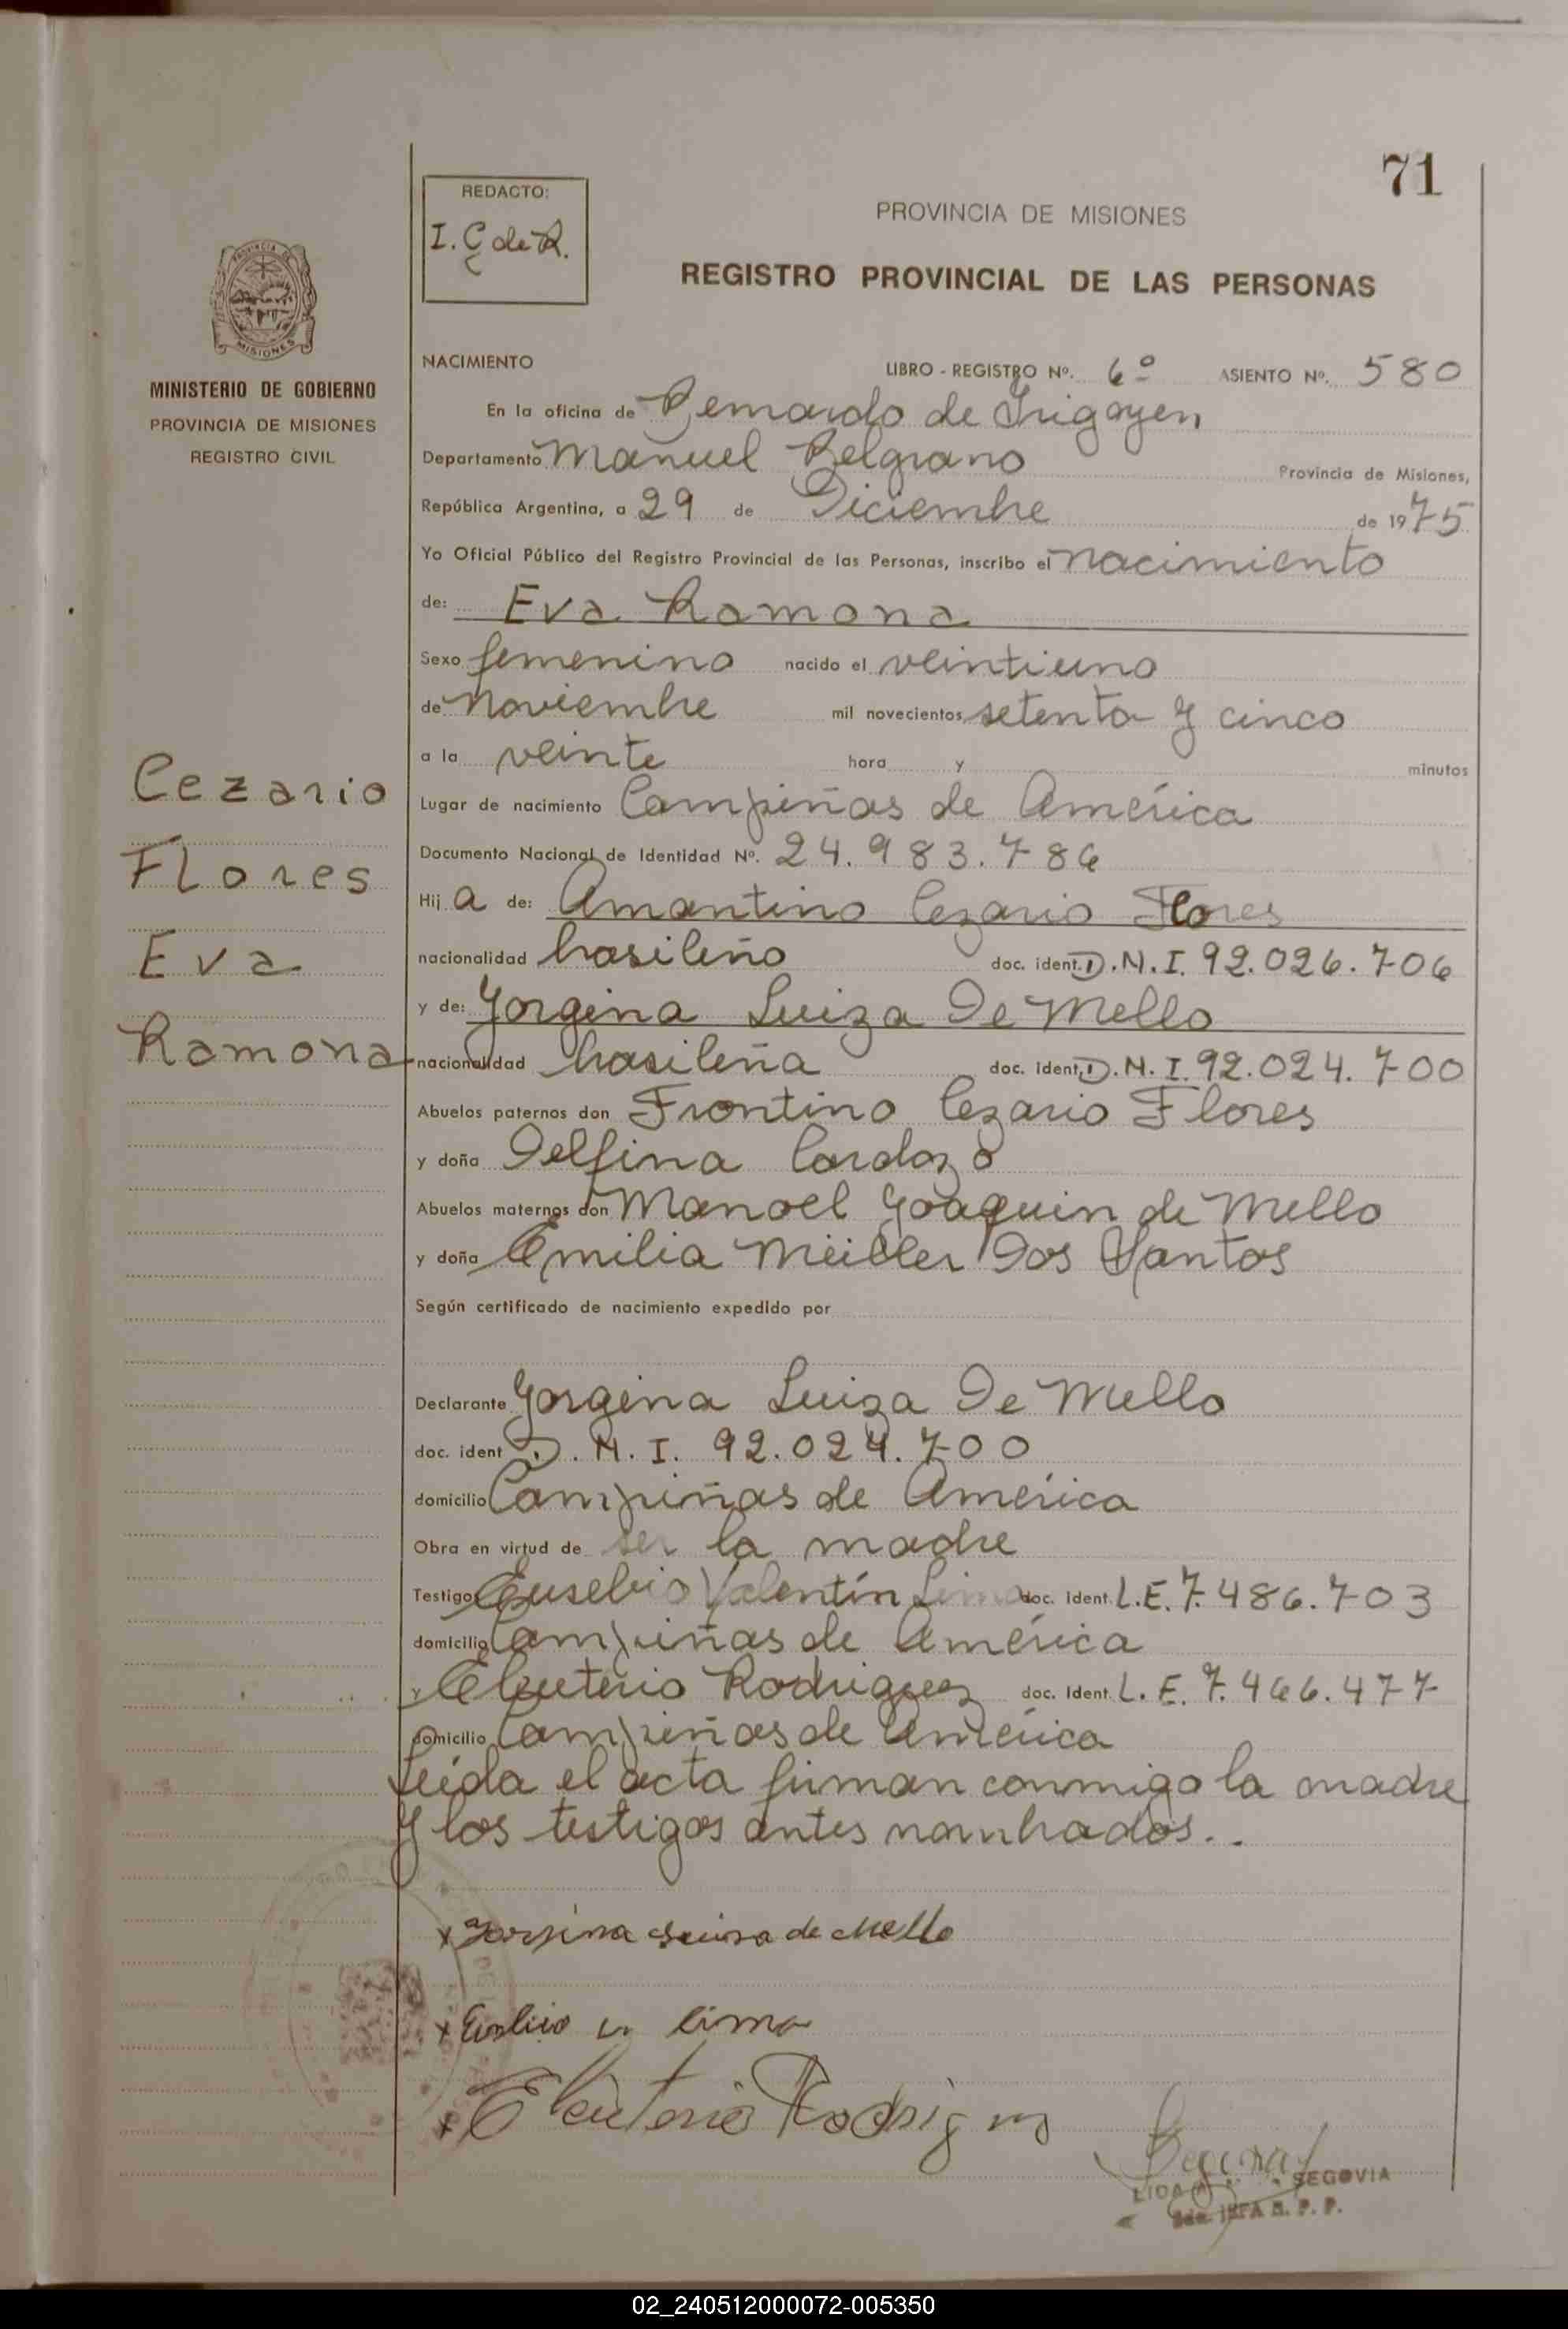 71
REDACTO:
I. C de R.
PROVINCIA DE MISIONES
REGISTRO PROVINCIAL DE LAS PERSONAS
PROVINCIA DE
MISIONES
MINISTERIO DE GOBIERNO
PROVINCIA DE MISIONES
REGISTRO CIVIL
NACIMIENTO LIBRO - REGISTRO Nº. 6º ASIENTO Nº. 580
En la oficina de Bernardo de Irigoyen
Departamento Manuel Belgrano Provincia de Misiones,
República Argentina, a 29 de Diciembre de 1975
Yo Oficial Público del Registro Provincial de las Personas, inscribo el nacimiento
de: Eva Ramona
Sexo femenino nacido el veintiuno
de noviembre mil novecientos setenta y cinco
a la veinte hora y minutos
Cezario
Flores
Eva
Ramona
Lugar de nacimiento Campiñas de América
Documento Nacional de Identidad Nº. 24.983.786
Hij a de: Amantino Cezario Flores
nacionalidad brasileño doc. ident. D.N.I. 92.026.706
y de: Yorgina Luiza De Mello
nacionalidad brasileña doc. ident. D.N.I. 92.024.700
Abuelos paternos don Frontino Cezario Flores
y doña Delfina Cardozo
Abuelos maternos don Manoel Yoaquin de Mello
y doña Emilia Meiller Dos Santos
Según certificado de nacimiento expedido por
Declarante Yorgina Luiza De Mello
doc. ident D.N.I. 92.024.700
domicilio Campiñas de América
Obra en virtud de ser la madre
Testigo Eusebio Valentín Lima doc. ident. L.E. 7.486.703
domicilio Campiñas de América
y Eleuterio Rodriguez doc. ident. L.E. 7.466.477
domicilio Campiñas de América
Leída el acta firman conmigo la madre
y los testigos antes nombrados..
x Yorgina Luiza de Mello
x Eusebio v. lima
x Eleuterio Rodriguez
SEGOVIA
02_240512000072-005350